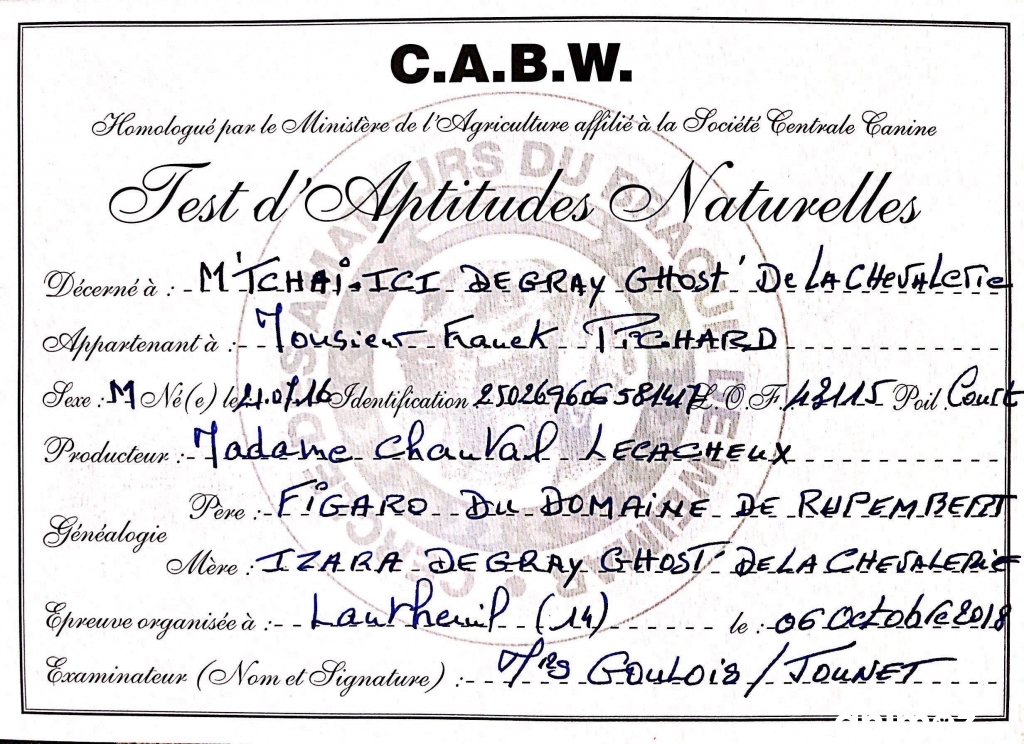 C.A.B.W.
Homologué par le Ministère de l'Agriculture affilié à la Société Centrale Canine
Test d'Aptitudes Naturelles
Décerné à : M'TCHAÏ.ICI DE GRAY GHOST' De LA CHEVALerie
Appartenant à : Monsieur Franck PICHARD
Sexe : M Né(e) le Identification L.O.F. Poil Court
Producteur : Madame Chantal LECACHEUX
Généalogie
Père : FIGARO DU DOMAINE DE RUPEMBERT
Mère : IZARA DE GRAY GHOST' DE LA CHEVALERIE
Epreuve organisée à : (14) le : 06 Octobre 2018
Examinateur (Nom et Signature) : Mrs GOULOIS / JOUNET